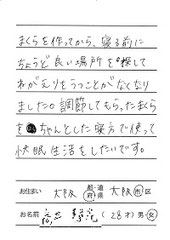 まくらを作ってから、寝る前に
ちょうど良い場所を探して
ねがえりをうつことがなくなり
ました。調節してもらったまくら
をちゃんとした寝方で使って
快眠生活をしたいです。
お住まい 大阪 都道府県 大阪 市区
お名前 (28才) 男・女